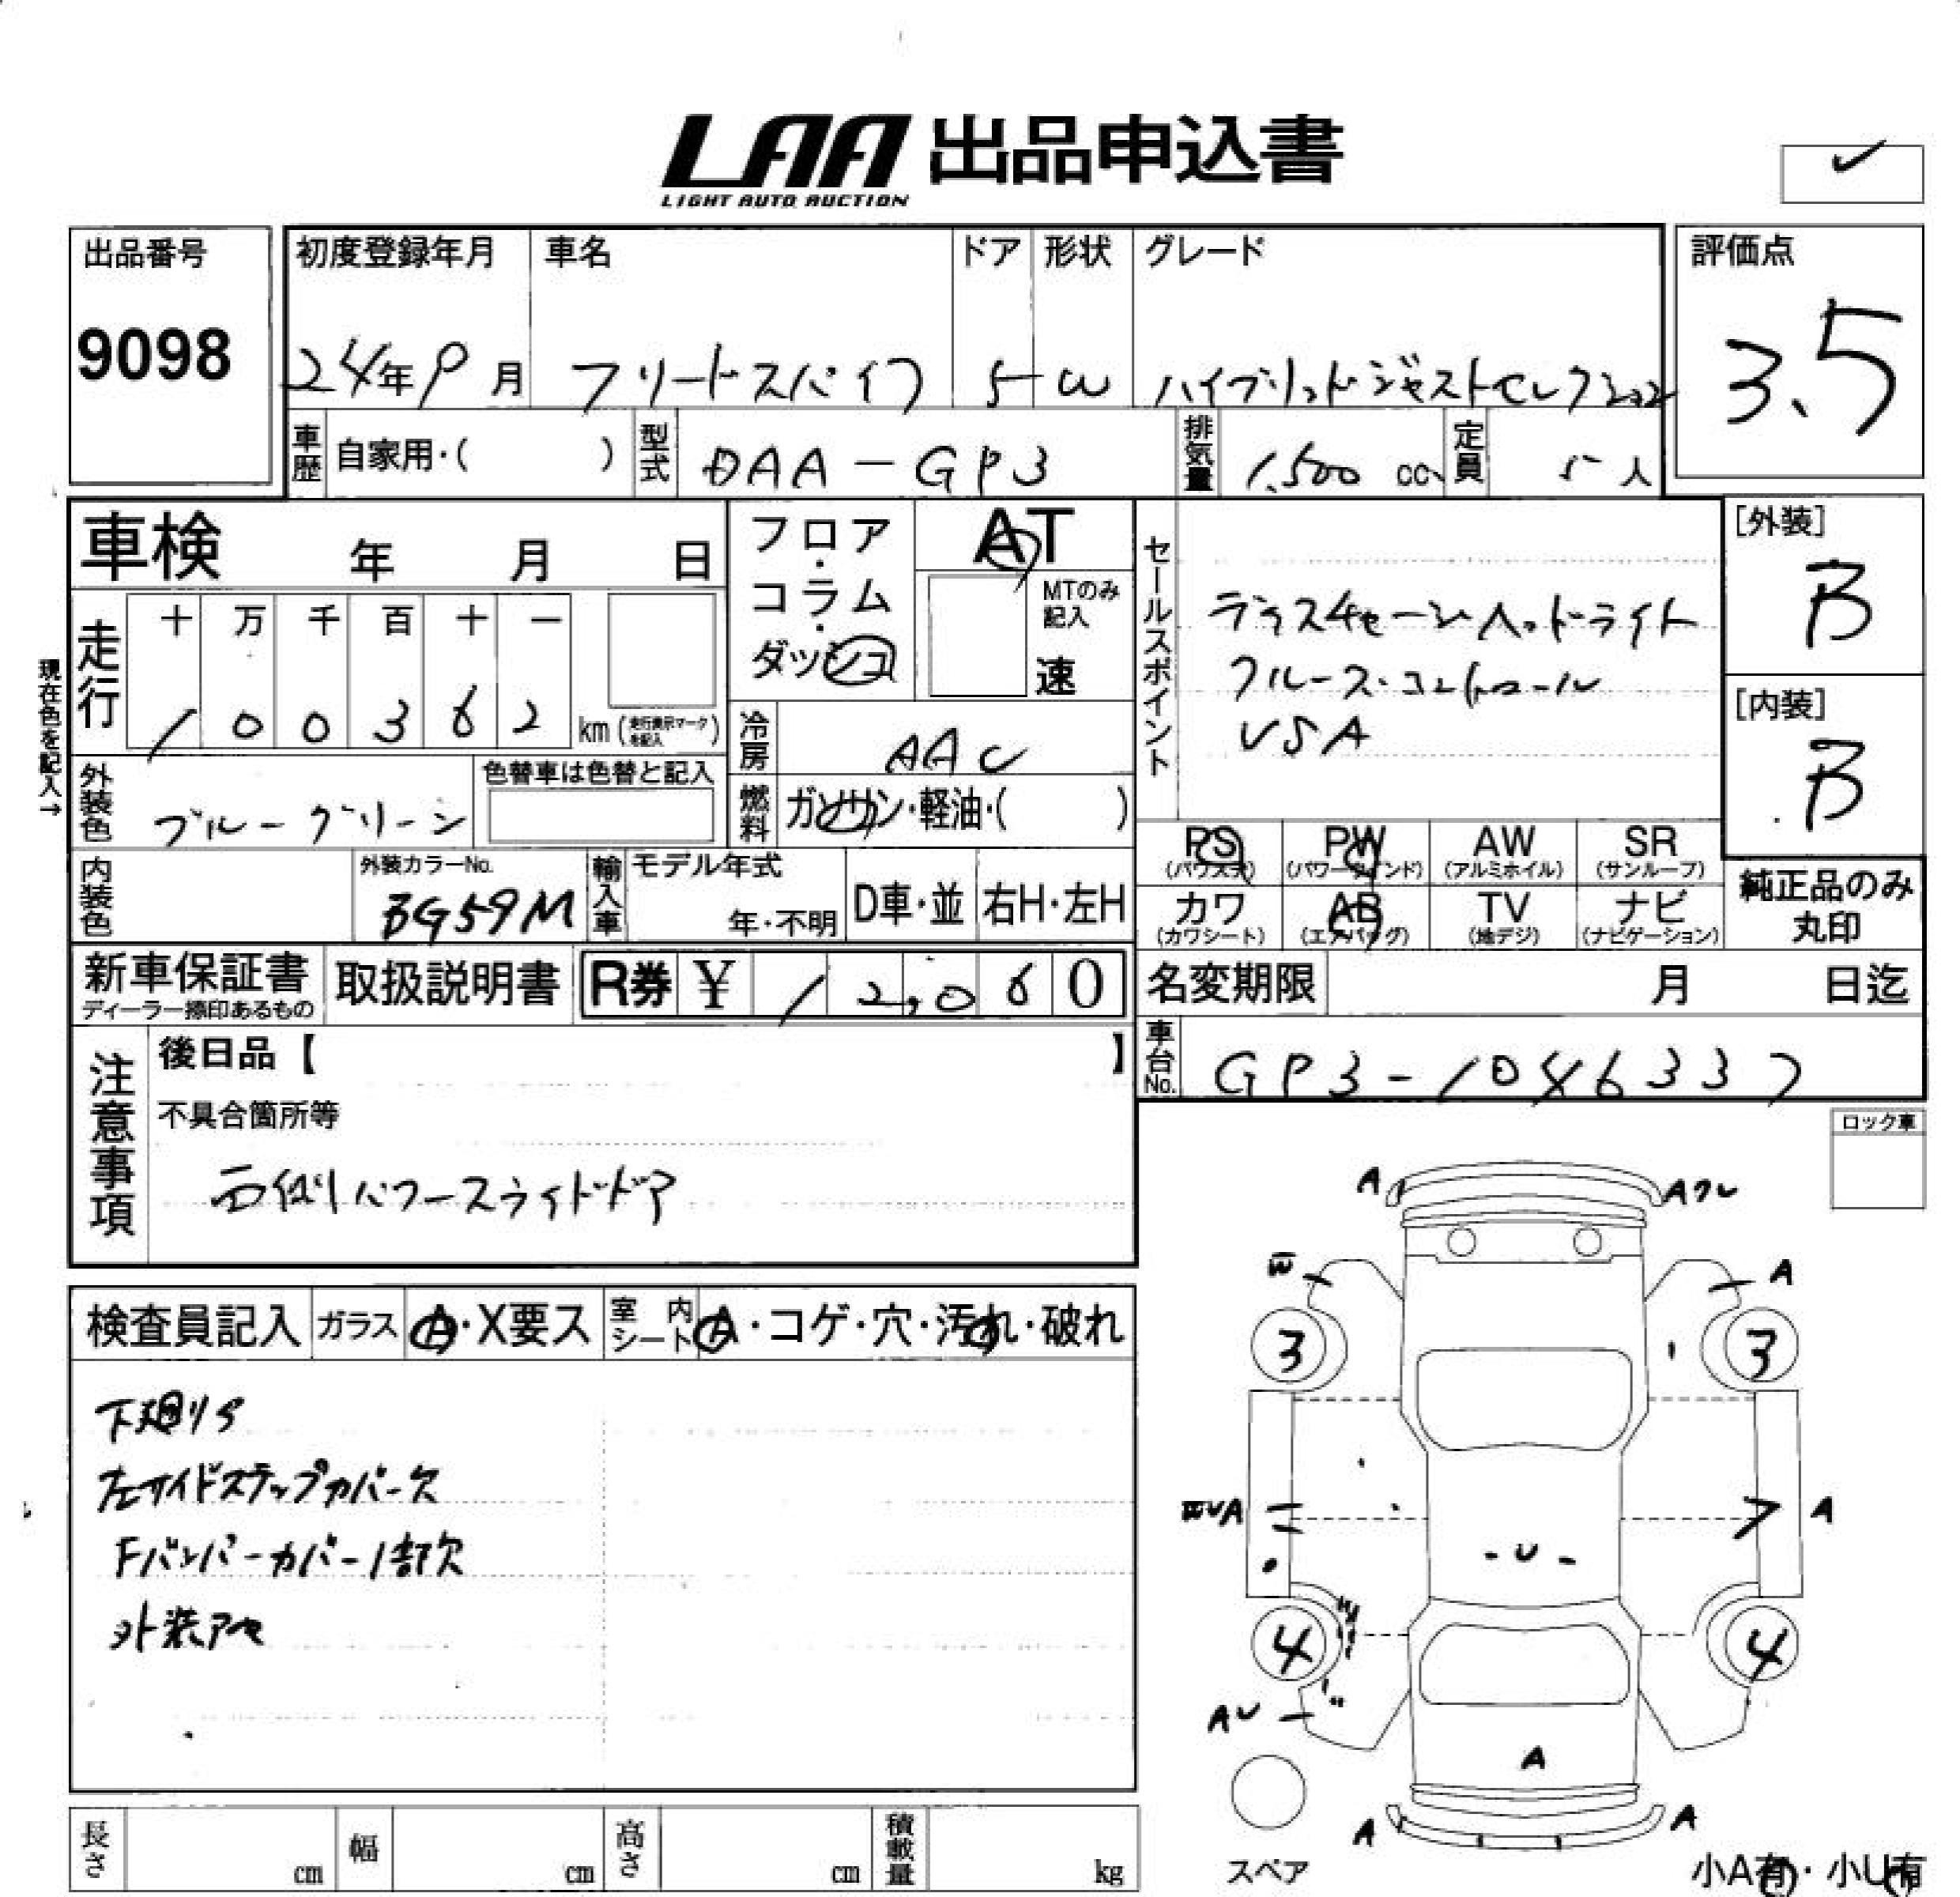 LAA 出品申込書
LIGHT AUTO AUCTION
出品番号
9098
初度登録年月 車名 ドア 形状 グレード
24年9月 フリードスパイク 5 W ハイブリッドジャストセレクション
評価点
3.5
車歴 自家用・( ) 型式 DAA-GP3 排気量 1,500 cc 定員 5人
車検 年 月 日
フロア・コラム・ダッシュ
AT
MTのみ記入
速
走行
十 万 千 百 十 一
1 0 0 3 6 2 km (走行表示マークを記入)
現在色を記入→
冷房 AAC
燃料 ガソリン・軽油・( )
外装色 ブルーグリーン
色替車は色替と記入
内装色
外装カラーNo.
BG59M
輸入車 モデル年式
年・不明
D車・並 右H・左H
セールスポイント
ディスチャージヘッドライト
クルーズ・コントロール
VSA
[外装]
B
[内装]
B
PS PW AW SR
(パワステ) (パワーウインド) (アルミホイル) (サンルーフ)
カワ AB TV ナビ
(カワシート) (エアバッグ) (地デジ) (ナビゲーション)
純正品のみ
丸印
新車保証書
ディーラー捺印あるもの
取扱説明書
R券 ¥ 12,060
名変期限 月 日迄
車台No. GP3-1046337
注意事項
後日品【 】
不具合箇所等
右側パワースライドドア
ロック車
検査員記入 ガラス A・X要ス 室内シート A・コゲ・穴・汚れ・破れ
下廻りサ
左サイドステップカバー欠
Fバンパーカバー1部欠
外装アセ
A
Aワレ
W
A
3
3
WUA
A
U
4
4
AU
A
A
A
スペア
小A有・小U有
長さ cm 幅 cm 高さ cm 積載量 kg